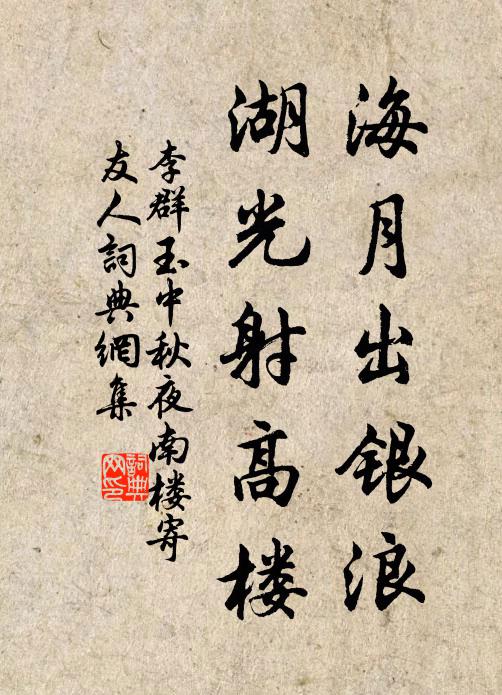 海月出银浪
湖光射高楼
李群玉中秋夜南楼寄
友人詞典網集
詞典
网印